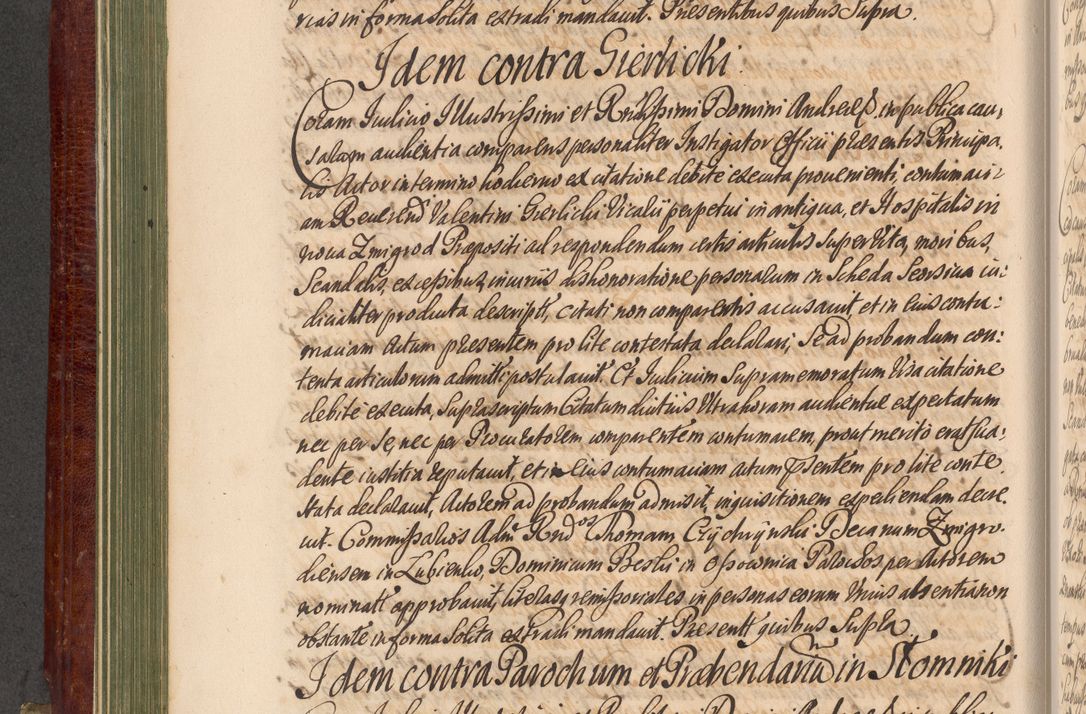 rias in forma solita extradi mandavit. Presentibus quibus Supra.
Idem contra Gierlicki.
Coram Iudicio Illustrissimi et Rndissimi Domini Andreae E. in publica cau:
salaem audientia comparens personaliter Instigator Officii praesentis Principa.
lis Actor in termino hodierno ex citatione debite executa provenienti, contumaci:
am Reverend Valentini Gierlicki Vicarii perpetui in antiqua, et Hospitalis in
nova Zmigrod Præpositi ad respondendum certis articulis super Vita, moribus,
Scandalis, excessibus, iniuriis dishonoratione personarum in Scheda Seorsiva iu:
dicialiter producta descript, citati non comparentis accusavit, et in eius contu:
maciam actum praesentem pro lite contestata declarari, Se ad probandum con:
tenta articulorum admitti postulavit. Et Iudicium Supramemoratum Visa citatione
debite executa, Suprascriptum Citatum diutius Ultra horam audientiae expectatum
nec per Se, nec per Procuratorem comparentem contumacem, prout merito erat sua:
dente iustitia reputavit, et in eius contumaciam actum psentem pro lite conte
stata declaravit, Actorem ad probandum admisit, inquisitionem expediendam decre
vit. Commissarios Adm Rnd os Thomam Czychryński Decanum Zmigro
diensem in Łubienko, Dominicum Beski in Ossownica Parochos per Actorem
nominatt approbavit, literas remissoriales in personas eorum Unius absentia non
obstante in forma solita extradi mandavit. Presentt quibus Supra.
Idem contra Parochum et Præbendariū in Słomniki